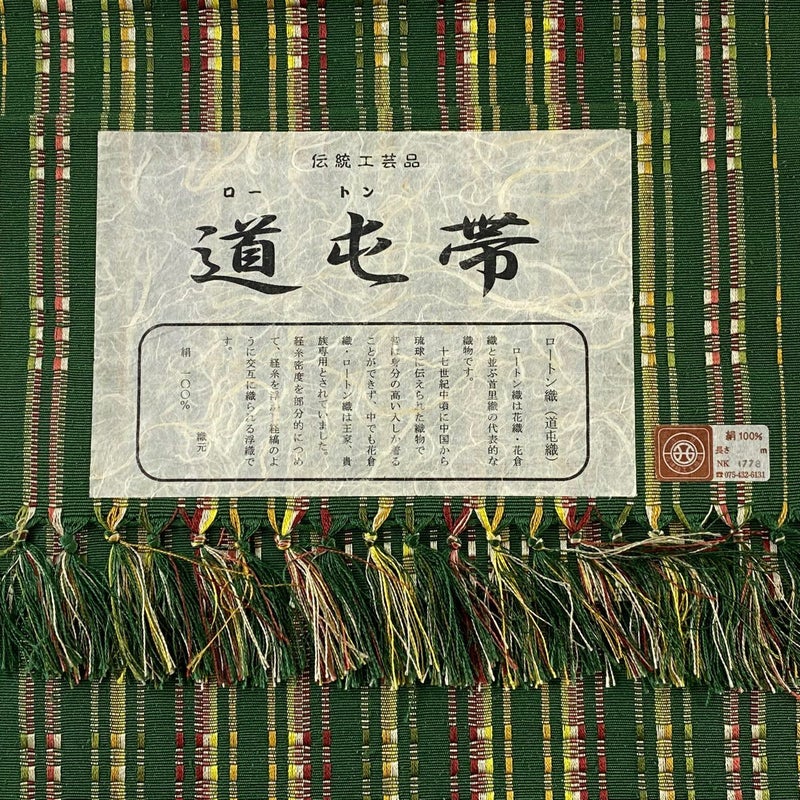 伝統工芸品
ロートン
道屯帯
ロートン織（道屯織）
ロートン織は花織・花倉
織と並ぶ首里織の代表的な
織物です。
十七世紀中頃に中国から
琉球に伝えられた織物で
昔は身分の高い人しか着る
ことができず、中でも花倉
織・ロートン織は王家、貴
族専用とされていました。
経糸密度を部分的につめ
て、経糸を浮かし経縞のよ
うに交互に織られる浮織で
す。
絹 一〇〇％
織元
絹100%
長さ m
NK 1778
☎075-432-6131